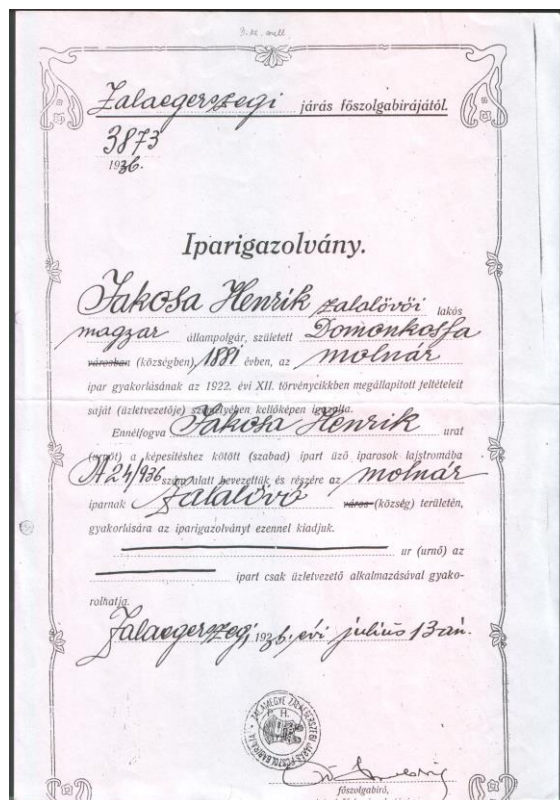 3. sz. mell.
Zalaegerszegi járás főszolgabirájától.
3873
1936.
Iparigazolvány.
Jakosa Henrik zalalövői lakós
magyar állampolgár, született Domonkosfa
városban (községben) 1881 évben, az molnár
ipar gyakorlásának az 1922. évi XII. törvénycikkben megállapitott feltételeit
saját (üzletvezetője) személyében kellőképen igazolta.
Ennélfogva Jakosa Henrik urat
(urnőt) a képesítéshez kötött (szabad) ipart űző iparosok lajstromába
A24/936 szám alatt bevezettük és részére az molnár
iparnak Zalalövő város (község) területén,
gyakorlására az iparigazolványt ezennel kiadjuk.
ur (urnő) az
ipart csak üzletvezető alkalmazásával gyako-
rolhatja.
Zalaegerszeg, 1936. évi július 13 án.
ZALAMEGYE ZALAEGERSZEGI JÁRÁS FŐSZOLGABIRÁJA
P. H.
főszolgabíró,